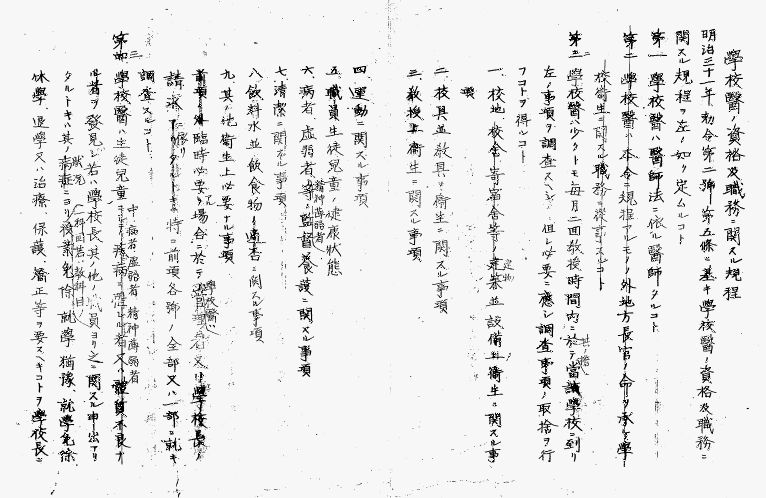 學校醫ノ資格及職務ニ関スル規程
明治三十一年勅令第二號第五條ニ基キ學校醫ノ資格及職務ニ
関スル規程ヲ左ノ如ク定ムルコト
第一 學校醫ハ醫師法ニ依ル醫師タルコト
第二 學校醫ハ本令ニ規程アルモノノ外地方長官ノ命ヲ承ケ學
校衛生ニ関スル職務ニ従事スルコト
第三 學校醫ハ少クトモ每月二回敎授時間內ニ於テ當該學校ニ到リ
左ノ事項ヲ調查スヘシ但シ必要ニ應シ調查事項ノ取捨ヲ行
フコトヲ得ルコト
一、校地、校舍、寄宿舍等ノ建築並設備ノ衛生ニ関スル事
項
二、校具並敎具ノ衛生ニ関スル事項
三、敎授上衛生ニ関スル事項
四、運動ニ関スル事項
五、職員生徒兒童ノ健康狀態
六、病者、虛弱者、精神薄弱者等ノ監督養護ニ関スル事項
七、淸潔ニ関スル事項
八、飲料水並飲食物ノ適否ニ関スル事項
九、其ノ他衛生上必要ナル事項
前項ノ外臨時必要ノ場合ニ於テ又ハ學校長ノ
請求アリタルトキハ特ニ前項各號ノ全部又ハ一部ニ就キ
調查スルコト
第四 學校醫ハ生徒兒童中病者虛弱者精神薄弱者又ハ體質不良ナ
ル者ヲ發見シ若ハ學校長其ノ他ノ職員ヨリ之ニ関スル申出アリ
タルトキハ其ノ狀況ニヨリ授業免除、就學猶豫、就學免除
休學、退學又ハ治療、保護、矯正等ヲ要スヘキコトヲ學校長ニ